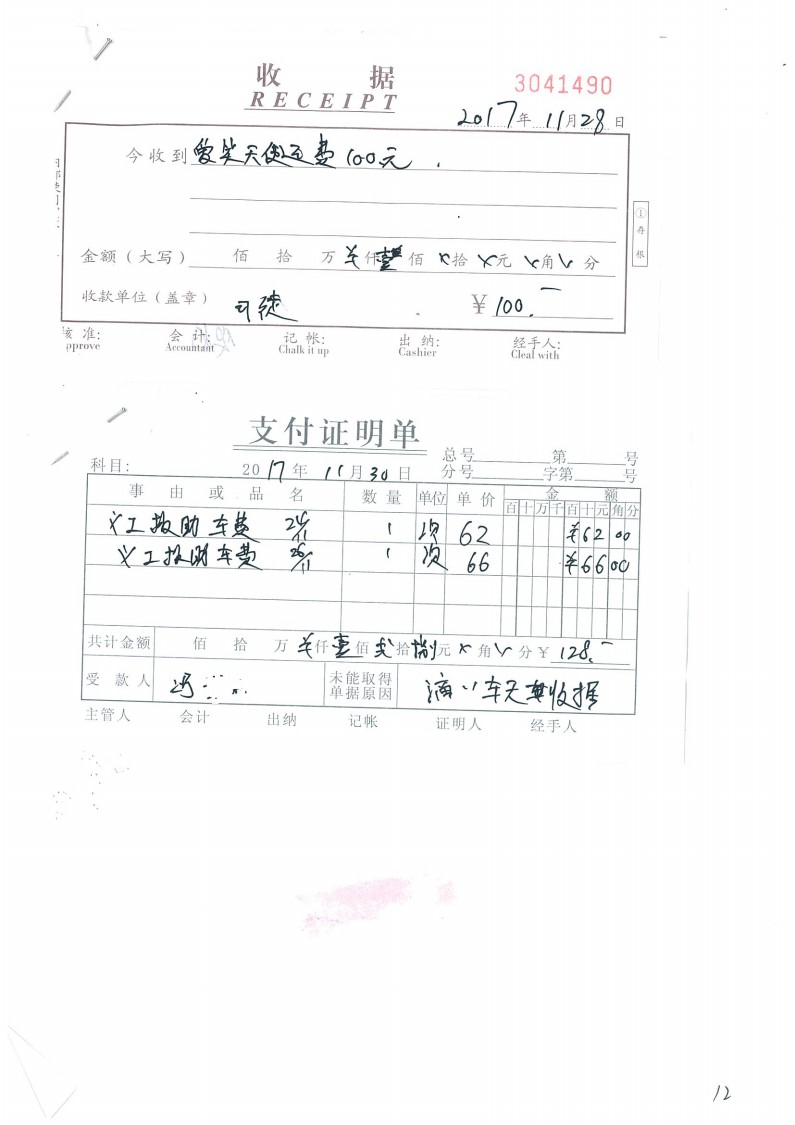 收 据
RECEIPT
3041490
2017年 11月28日
今收到 爱笑天使运费 100元
金额(大写) 佰 拾 万 ¥仟壹佰 ×拾 ×元 ×角 ×分
收款单位(盖章) ¥ 100.—
① 存根
核 准: 会 计: 记 帐: 出 纳: 经手人:
pprove Accountant Chalk it up Cashier Cleal with
支付证明单
总号 第 号
科目: 2017年 11月30日 分号 字第 号
事 由 或 品 名 数 量 单位 单 价 金 额
百十万千百十元角分
义工救助车费 24/11 1 次 62 ¥62 00
义工救助车费 26/11 1 次 66 ¥66 00
共计金额 佰 拾 万 ¥仟壹佰贰拾捌元×角×分¥ 128.—
受 款 人 冯 未能取得单据原因 滴 车无 收据
主管人 会计 出纳 记帐 证明人 经手人
12